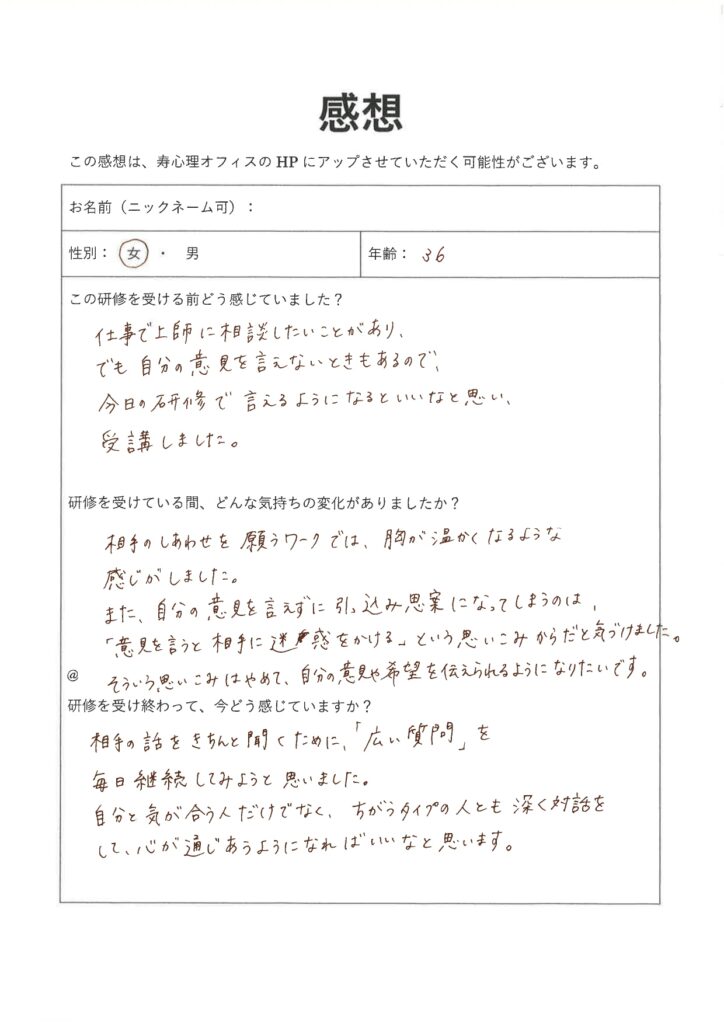 感想
この感想は、寿心理オフィスの HP にアップさせていただく可能性がございます。
お名前（ニックネーム可）：
性別： 女 ・ 男
年齢： 36
この研修を受ける前どう感じていました？
仕事で上師に相談したいことがあり、
でも自分の意見を言えないときもあるので、
今日の研修で言えるようになるといいなと思い、
受講しました。
研修を受けている間、どんな気持ちの変化がありましたか？
相手のしあわせを願うワークでは、胸が温かくなるような
感じがしました。
また、自分の意見を言えずに引っ込み思案になってしまうのは、
「意見を言うと相手に迷惑をかける」という思いこみからだと気づけました。
@
そういう思いこみはやめて、自分の意見や希望を伝えられるようになりたいです。
研修を受け終わって、今どう感じていますか？
相手の話をきちんと聞くために、「広い質問」を
毎日継続してみようと思いました。
自分と気が合う人だけでなく、ちがうタイプの人とも深く対話を
して、心が通じあうようになればいいなと思います。